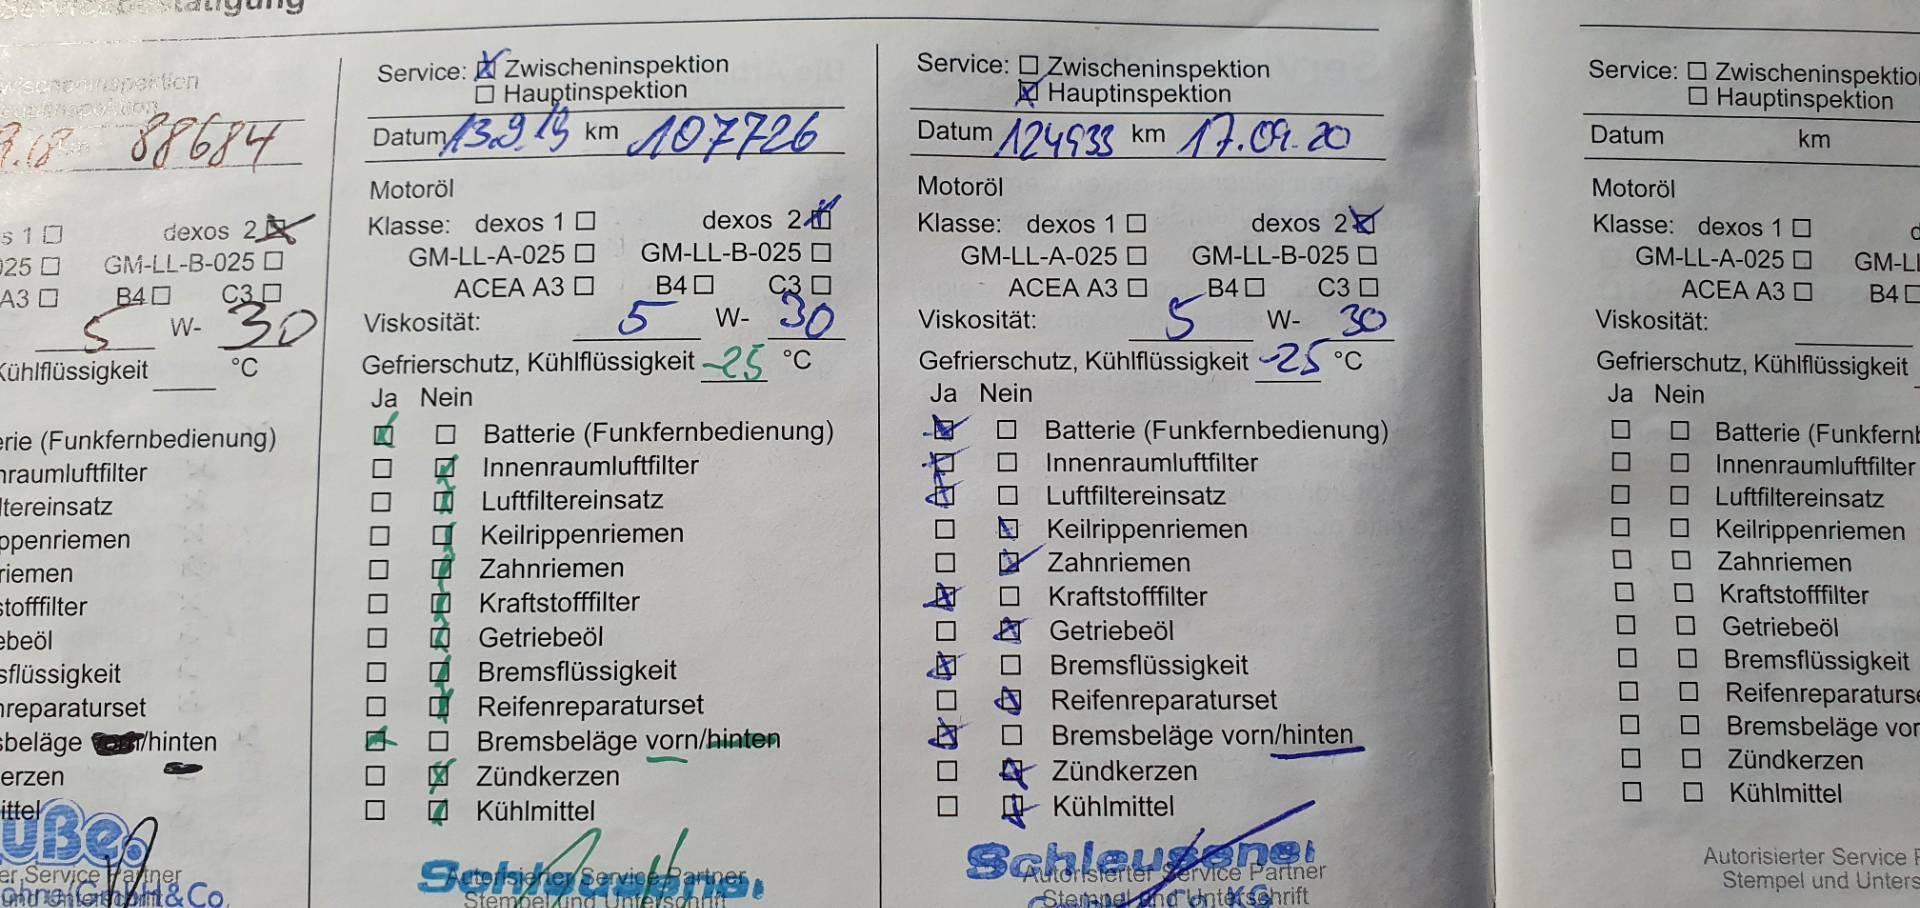 Servicebestätigung
wischeninspektion
88684
s 1 dexos 2
025 GM-LL-B-025
A3 B4 C3
5 W- 30
Kühlflüssigkeit °C
erie (Funkfernbedienung)
nraumluftfilter
ltereinsatz
ppenriemen
riemen
stofffilter
ebeöl
sflüssigkeit
nreparaturset
sbeläge /hinten
erzen
ittel
er Service Partner
GmbH & Co.
Service: Zwischeninspektion
Hauptinspektion
Datum 13.9.19 km 107726
Motoröl
Klasse: dexos 1 dexos 2
GM-LL-A-025 GM-LL-B-025
ACEA A3 B4 C3
Viskosität: 5 W- 30
Gefrierschutz, Kühlflüssigkeit -25 °C
Ja Nein
Batterie (Funkfernbedienung)
Innenraumluftfilter
Luftfiltereinsatz
Keilrippenriemen
Zahnriemen
Kraftstofffilter
Getriebeöl
Bremsflüssigkeit
Reifenreparaturset
Bremsbeläge vorn/hinten
Zündkerzen
Kühlmittel
Autorisierter Service Partner
Stempel und Unterschrift
Service: Zwischeninspektion
Hauptinspektion
Datum 124933 km 17.09.20
Motoröl
Klasse: dexos 1 dexos 2
GM-LL-A-025 GM-LL-B-025
ACEA A3 B4 C3
Viskosität: 5 W- 30
Gefrierschutz, Kühlflüssigkeit -25 °C
Ja Nein
Batterie (Funkfernbedienung)
Innenraumluftfilter
Luftfiltereinsatz
Keilrippenriemen
Zahnriemen
Kraftstofffilter
Getriebeöl
Bremsflüssigkeit
Reifenreparaturset
Bremsbeläge vorn/hinten
Zündkerzen
Kühlmittel
Schleussner
Autorisierter Service Partner
Stempel und Unterschrift
KG
Service: Zwischeninspektio
Hauptinspektion
Datum km
Motoröl
Klasse: dexos 1 d
GM-LL-A-025 GM-LL
ACEA A3 B4
Viskosität:
Gefrierschutz, Kühlflüssigkeit
Ja Nein
Batterie (Funkfernb
Innenraumluftfilter
Luftfiltereinsatz
Keilrippenriemen
Zahnriemen
Kraftstofffilter
Getriebeöl
Bremsflüssigkeit
Reifenreparaturse
Bremsbeläge vor
Zündkerzen
Kühlmittel
Autorisierter Service P
Stempel und Unters